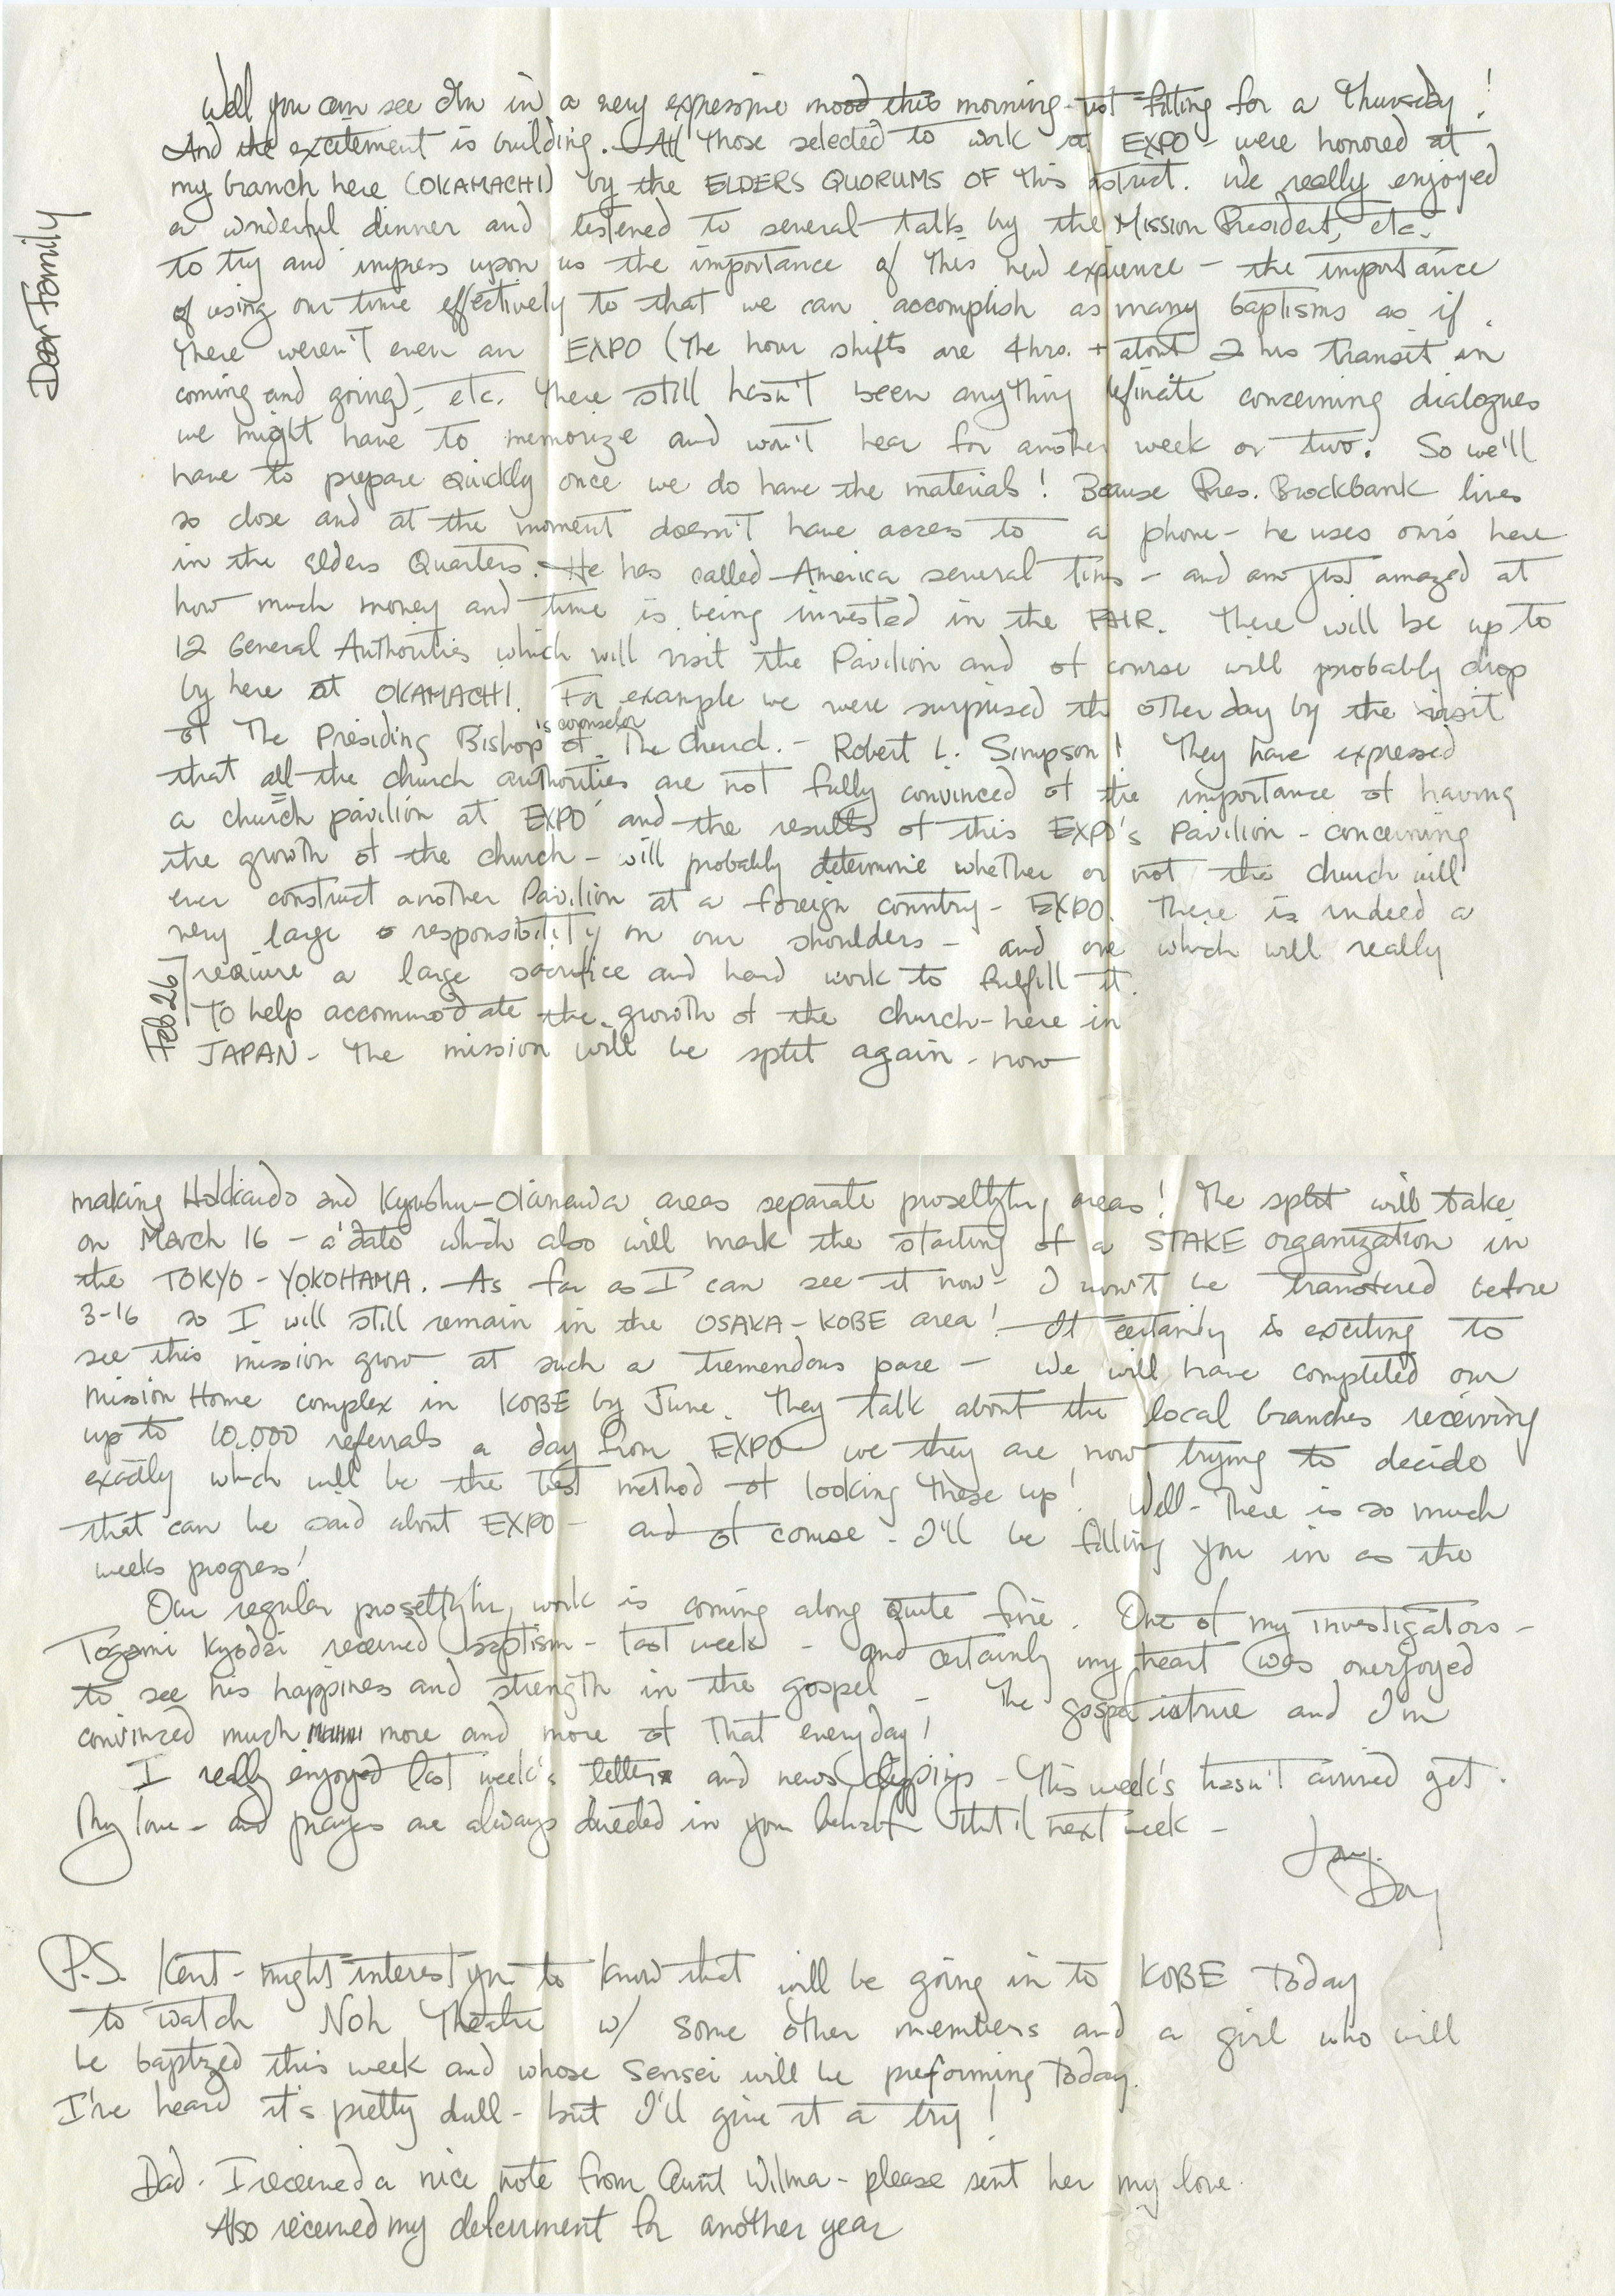 Dear Family
Well you can see I'm in a very expressive mood this morning - not fitting for a Thursday!
And the excitement is building. All those selected to work at EXPO - were honored at
my branch here (OKAMACHI) by the ELDERS QUORUMS OF This district. We really enjoyed
a wonderful dinner and listened to several talks by the Mission President, etc.
to try and impress upon us the importance of this new expience - the importance
of using our time effectively to that we can accomplish as many baptisms as if
there weren't even an EXPO (The hour shifts are 4hrs. + about 2 hrs transit in
coming and going), etc. There still hasn't been anything definate concerning dialogues
we might have to memorize and won't hear for another week or two. So we'll
have to prepare quickly once we do have the materials! Because Pres. Brockbank lives
so close and at the moment doesn't have access to a phone - he uses our's here
in the Elders Quarters. He has called America several times - and am just amazed at
how much money and time is being invested in the FAIR. There will be up to
12 General Authorities which will visit the Pavilion and of course will probably drop
by here at OKAMACHI. For example we were surprised the other day by the visit
of The Presiding Bishop's counselor of The Church. - Robert L. Simpson! They have expressed
that all the church authorities are not fully convinced of the importance of having
a church pavilion at EXPO and the results of this EXPO's Pavilion - concerning
the growth of the church - will probably determine whether or not the church will
ever construct another Pavilion at a foreign country - EXPO. There is indeed a
very large responsibility on our shoulders - and one which will really
require a large sacrifice and hard work to fulfill it.
To help accommodate the growth of the church - here in
JAPAN - The mission will be split again - now
Feb 26
making Hokkaido and Kyushu-Okinawa areas separate proselyting areas! The split will take
on March 16 - a date which also will mark the starting of a STAKE organization in
the TOKYO - YOKOHAMA. As far as I can see it now - I won't be transfered before
3-16 so I will still remain in the OSAKA - KOBE area! It certainly is exciting to
see this mission grow at such a tremendous pace - We will have completed our
Mission Home complex in KOBE by June. They talk about the local branches receiving
up to 10,000 referrals a day from EXPO we they are now trying to decide
exactly which will be the best method of looking these up! Well - There is so much
that can be said about EXPO - and of course - I'll be filling you in as the
weeks progress!
Our regular work is coming along quite fine. One of my investigators -
Togami Kyodai received baptism - last week - and certainly my heart was overjoyed
to see his happines and strength in the gospel - The gospel is true and I'm
convinced much more and more of that everyday!
I really enjoyed last week's letters and news clippings - This week's hasn't arrived yet.
My love - and prayers are always directed in your behalf Until next week -
P.S. Kent - might interest you to know that will be going in to KOBE Today
to watch Noh Theatre w/ some other members and a girl who will
be baptized this week and whose Sensei will be preforming Today.
I've heard it's pretty dull - but I'll give it a try!
Dad. I received a nice note from Aunt Wilma - please sent her my love.
Also received my deferment for another year